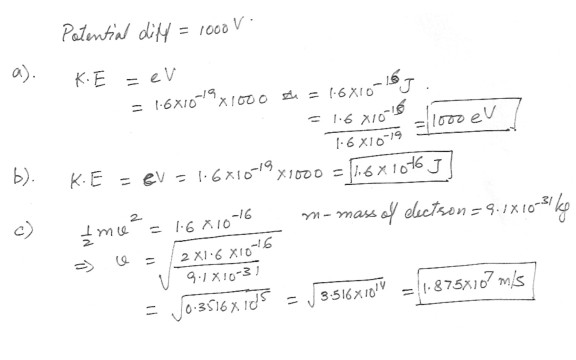 Potential diff = 1000 V.
a). K.E = eV
= 1.6×10^-19 × 1000 = 1.6×10^-16 J.
= 1.6×10^-16 / 1.6×10^-19 = 1000 eV
b). K.E = eV = 1.6×10^-19 ×1000 = 1.6×10^-16 J
c) ½mv² = 1.6×10^-16 m - mass of electron = 9.1×10^-31 kg
⇒ v = √(2×1.6×10^-16 / 9.1×10^-31)
= √(0.3516×10^15) = √(3.516×10^14) = 1.875×10^7 m/s